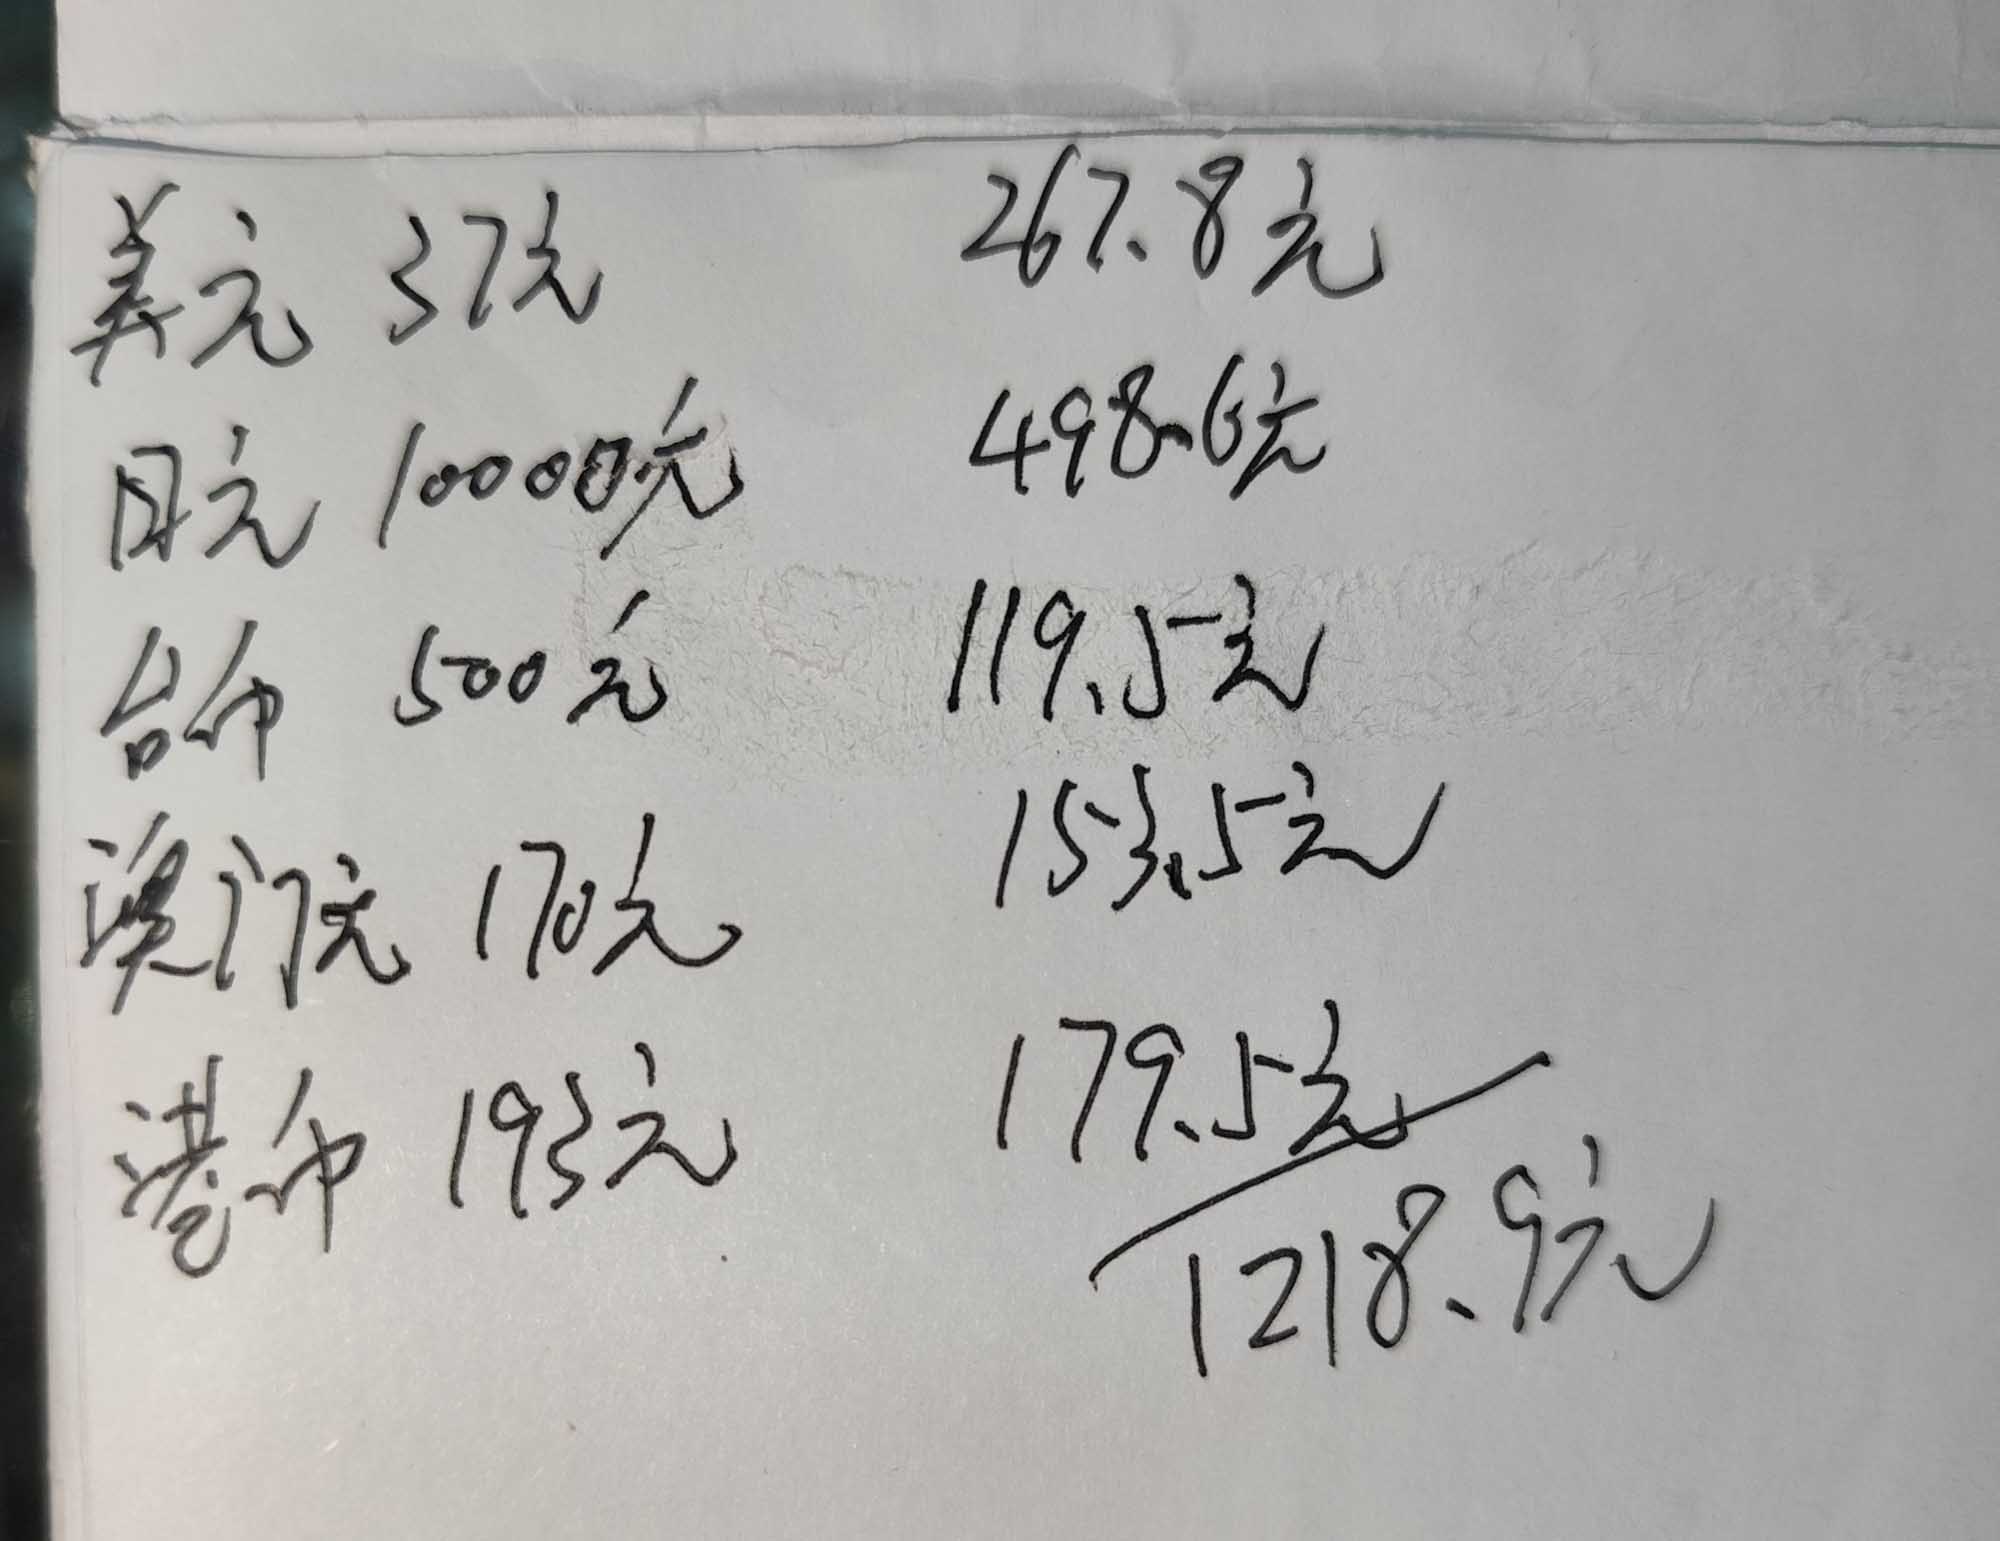 美元 37元 267.8元
日元 10000元 498.6元
台币 500元 119.5元
澳门元 170元 153.5元
港币 193元 179.5元
1218.9元